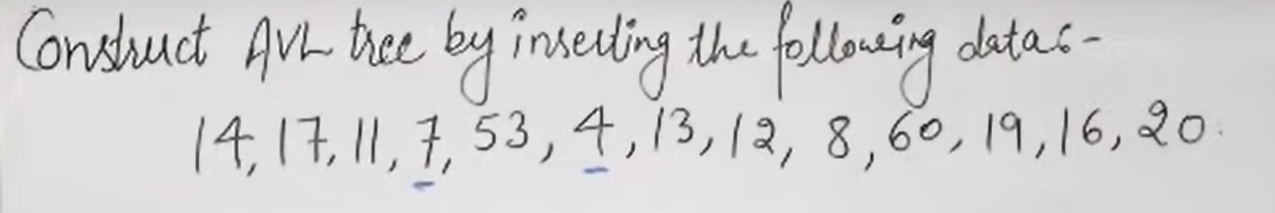 Construct AVL tree by inserting the following data:-
14, 17, 11, 7, 53, 4, 13, 12, 8, 60, 19, 16, 20.